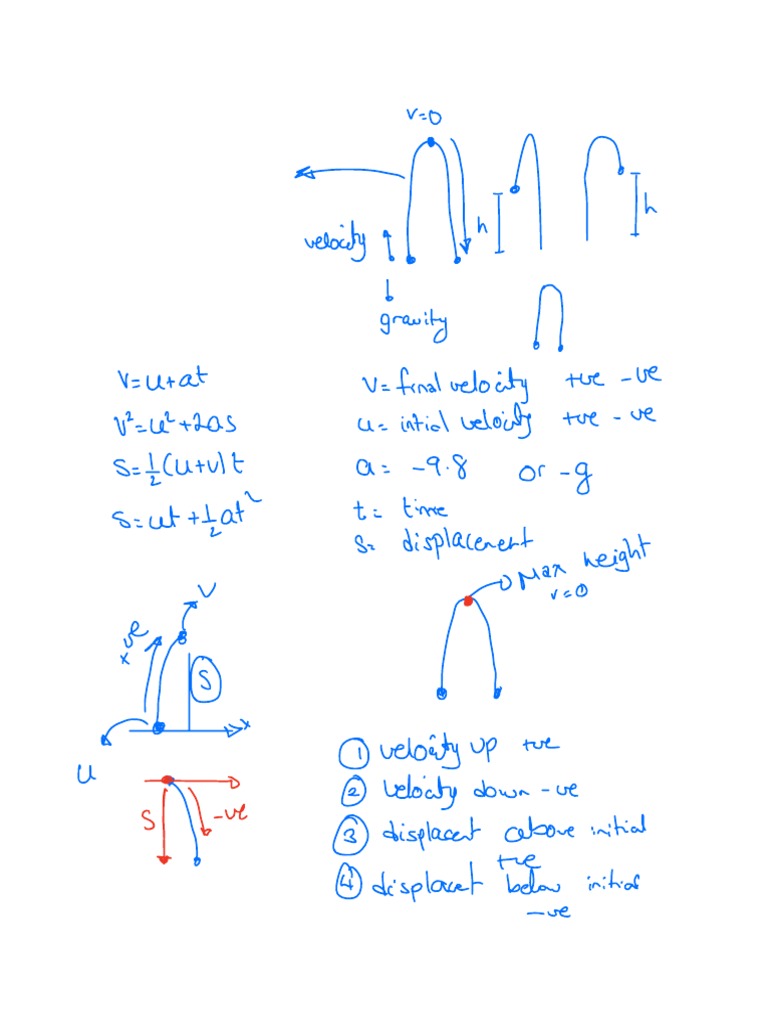 v=0
velocity
h
h
gravity
v=u+at
v²=u²+2as
s=½(u+v)t
s=ut+½at²
v= final velocity +ve -ve
u= intial velocity +ve -ve
a= -9.8 or -g
t= time
s= displacement
Max height
v=0
v
ve
S
x
u
S
-ve
① velocity up +ve
② velocity down -ve
③ displacent above initial
+ve
④ displacet below initial
-ve